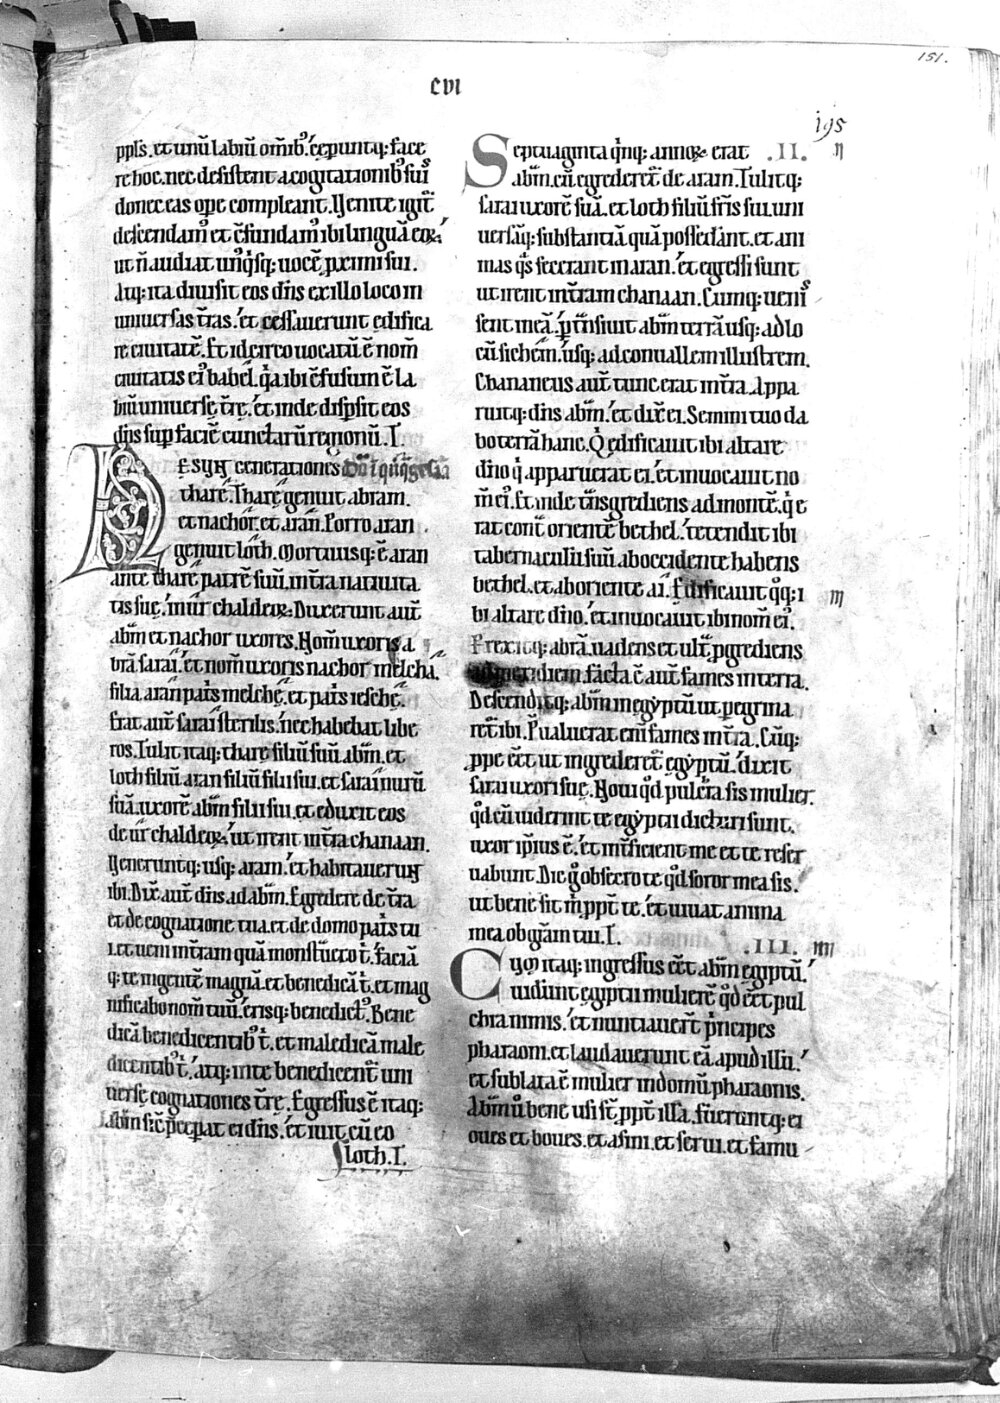 151.
CVI
195
ppl̃s. et unũ labiũ om̃ibꝰ. cęperuntq; face
re hoc. nec desistent a cogitationibꝰ suiſ
donec eas ope compleant. Uenite igit᷑
descendamꝰ et cõfundamꝰ ibi linguã eoꝝ.
ut ñ audiat unqͥsq; uocẽ proximi sui.
Atq; ita diuisit eos dñs ex illo loco in
uniuersas t̃ras. et cessauerunt ędifica
re ciuitatẽ. Et idcirco uocatũ ẽ nom̃
ciuitatis eiꝰ babel. qͥa ibi cõfusum ẽ la
biũ uniuersę t̃rę. et inde disp̱sit eos
dñs sup̱ faciẽ cunctarũ regionũ. I.
Hę sunt generationes
thare. Thare genuit abram.
et nachor. et aran. Porro aran
genuit loth. Mortuusq; ẽ aran
ante thare patrẽ suũ. in t̃ra natiuita
tis suę. in ur chaldeoꝝ. Duxerunt aut̃
abr̃m et nachor uxores. Nom̃ uxoris a
brã sarai. et nom̃ uxoris nachor melcha.
filia aran pat̃s melchę. et pat̃s ieschę.
Erat aut̃ sarai sterilis. nec habebat libe
ros. Tulit itaq; thare filiũ suũ abr̃m. et
loth filiũ aran filiũ filii sui. et sarai nurũ
suã. uxorẽ abr̃m filii sui. et eduxit eos
de ur chaldeoꝝ. ut irent in t̃ra chanaan.
Ueneruntq; usq; aram. et habitauerunt
ibi. Dix̃ aut̃ dñs ad abr̃m. Egredere de t̃ra
et de cognatione tua et de domo pat̃s tu
i. et ueni in t̃ram quã monst̃uero t̃. faciã
q; te in gentẽ magnã. et benedicã t̃. et mag
nificabo nom̃ tuũ. erisq; benedictꝰ. Bene
dicã benedicentibꝰ t̃. et maledicã male
dicentibꝰ t̃. atq; in te benedicent᷑ uni
uersę cognationes t̃rę. Egressus ẽ itaq;
abr̃m sic̃ p̃cep̱at ei dñs. et iuit cũ eo
loth. I.
Septuaginta qͥnq; annoꝝ erat .II. II
abr̃m. cũ egrederet᷑ de aram. Tulitq;
sarai uxorẽ suã. et loth filiũ fr̃is sui. uni
uersãq; substantiã quã possedãnt. et ani
mas qͣs fecerant in aran. et egressi sunt
ut irent in t̃ram chanaan. Cumq; ueniſ
sent in eã. p̱t̃nsiuit abr̃m terrã usq; ad lo
cũ sichem. usq; ad conuallem illustrem.
Chananeus aut̃ tunc erat in t̃ra. Appa
ruitq; dñs abr̃m. et dix̃ ei. Semini tuo da
bo terrã hanc. Qͥ edificauit ibi altare
dño qͥ apparuerat ei. et inuocauit no
m̃ eiꝰ. Et inde t̃nsgrediens ad montẽ. qͥ e
rat cont̃ orientẽ bethel. tetendit ibi
tabernaculũ suũ. ab occidente habens
bethel. et ab oriente ai. Edificauit qͦq; i III
bi altare dño. et inuocauit ibi nom̃ eiꝰ.
Prexitq; abrã uadens et ult̃ p̱grediens
ad meridiem. facta ẽ aut̃ fames in terra.
Descenditq; abr̃m in egyptũ ut peregrina
ret᷑ ibi. P̃ualuerat eni᷑ fames in t̃ra. Cũq;
ꝓpe eẽt ut ingrederet᷑ egyptũ. dixit
sarai uxori suę. Noui qͦd pulchra sis mulier.
qͦd cũ uiderint te egyptii dicturi sunt.
uxor ipsius ẽ. et int̃ficient me et te reser
uabunt. Dic g̊ obsecro te qͦd soror mea sis.
ut bene sit m̃ ppt̃ te. et uiuat anima
mea ob gr̃am tui. I.
.III. IIII
Cum itaq; ingressus eẽt abr̃m egyptũ.
uidunt egyptii mulierẽ qͦd eẽt pul
chra nimis. et nuntiauer̃t p̃ncipes
pharaoni. et laudauerunt eã apud illũ.
et sublata ẽ mulier in domũ pharaonis.
Abr̃m ů bene usi st̃ ppt̃ illã. fueruntq; ei
oues et boues. et asini. et serui. et famu